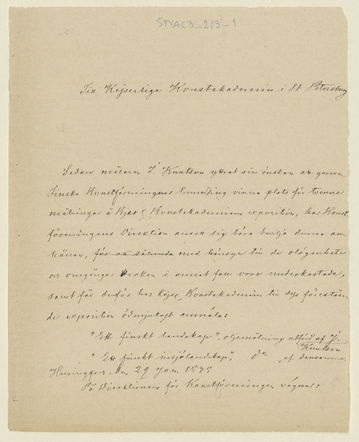 STYAC3_2/3-1
Till Kejserliga Konstakademin i St Petersburg
Sedan målaren J. Knutson yttrat sin önskan att genom
Finska Konstföreningens bemedling vinna plats för tvenne
målningar å Kejs. Konstakademins exposition, har Konst
föreningens Direktion ansett sig böra bevilja denna an
hållan, för så med hänsyn till de
i annat fall vore underkastade,
samt får derför hos Kejs. Konstakademin till dess förestån
de exposition ödmjukast anmäla:
"Ett finskt landskap", oljemålning utförd af J.
Knutson
"Ett finskt insjölandskap", do af densamme
Helsingfors den 29 Jan. 1875
På Direktionens för Konstföreningen vägnar: